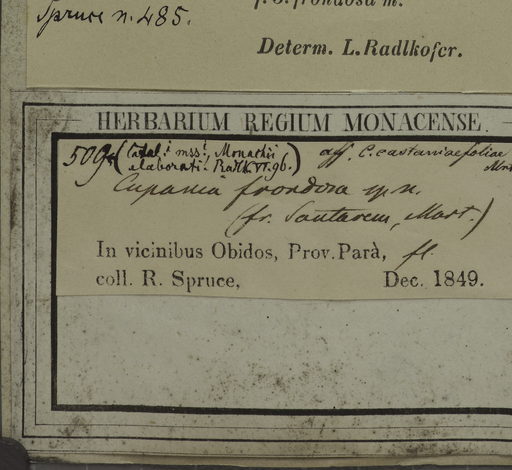 f. S. frondosa m.
Spruce n. 485.
Determ. L. Radlkofer.
HERBARIUM REGIUM MONACENSE.
509 (Catal.i mss.i, Monachii aff. C. castaniaefoliae
elaborati. Radlk. VI. 96.) Mrt
Cupania frondosa sp. n.
(fr. Santarem, Mart.)
In vicinibus Obidos, Prov. Parà, fl.
coll. R. Spruce, Dec. 1849.